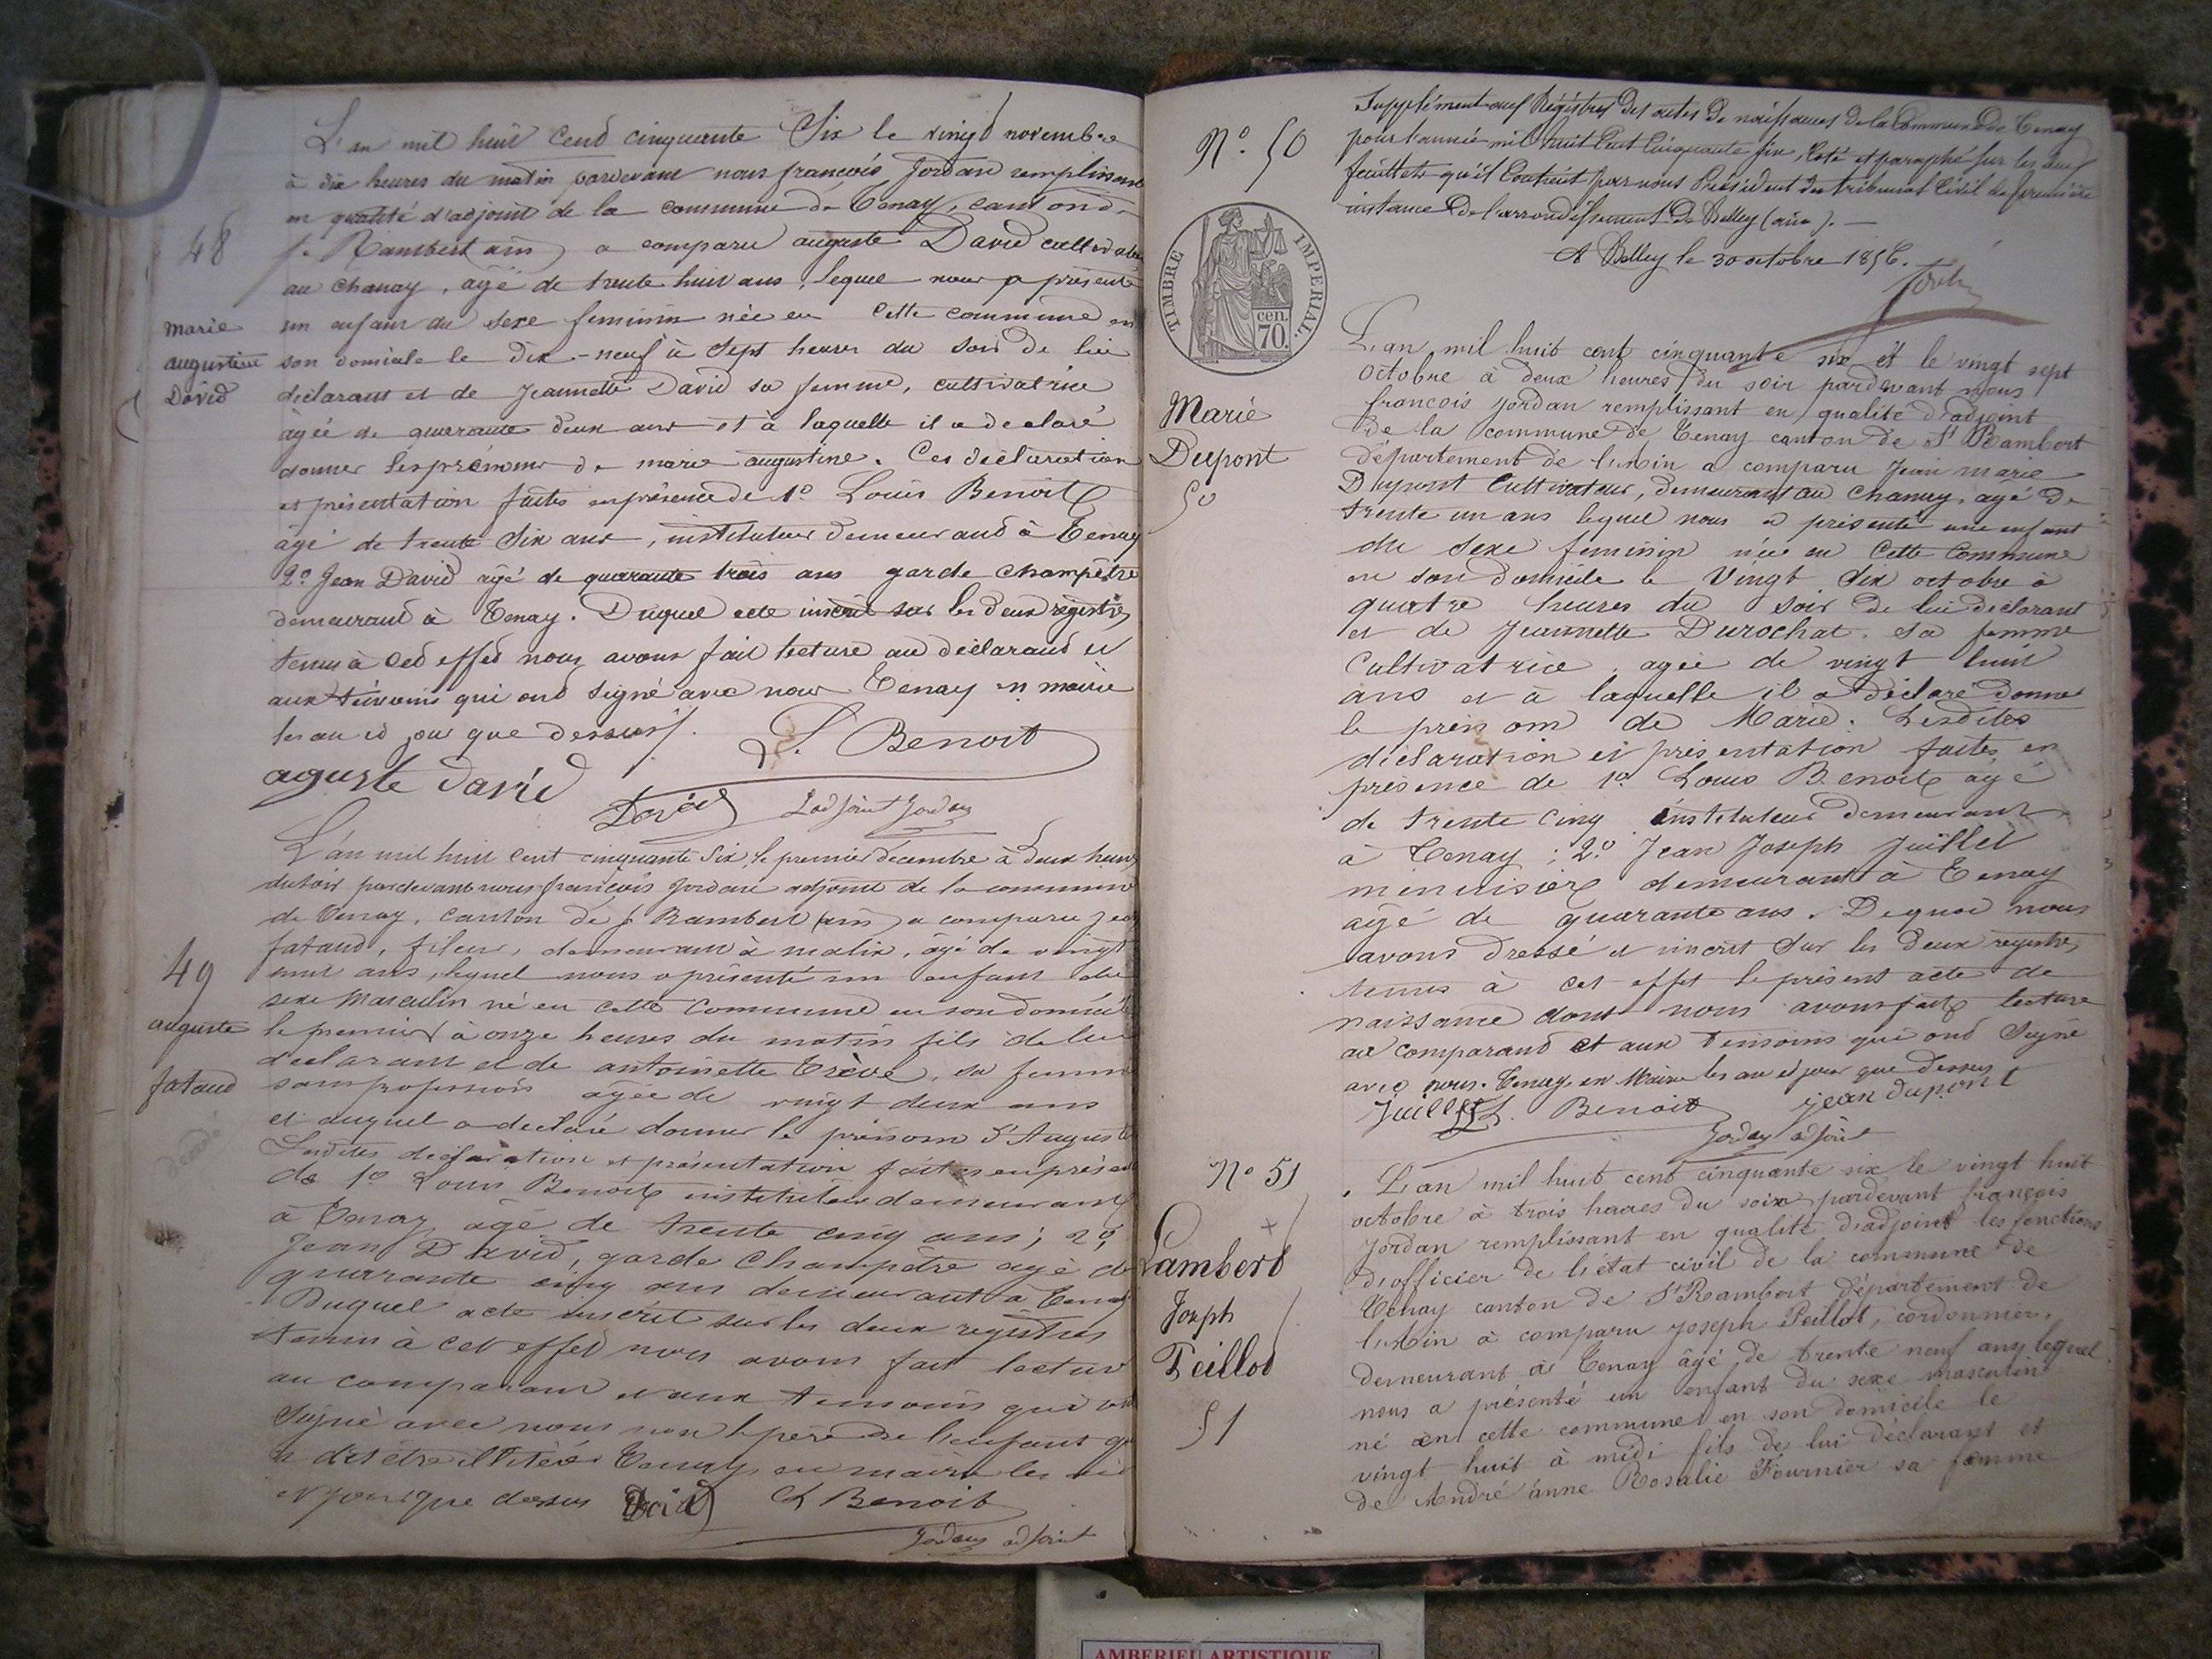 L'an mil huit cend cinquante Six le vingt novembre
à dix heures du matin pardevant nous françois Jordan remplissant
en qualité d'adjoint de la commune de Tenay, canton de
48
St Rambert ain) a comparu auguste David cultivateur
au chanay, agé de trente huit ans, lequel nous a présenté
marie
augustine
David
un enfant du sexe feminin née en cette commune en
son domicile le dix-neuf à sept heures du soir de lui
déclarant et de Jeannette David sa femme, cultivatrice
âgée de quarante deux ans et à laquelle il a declaré
donner les prénoms de marie augustine. Ces déclaration
et présentation faites en présence de 1º Louis Benoit
âgé de trente six ans, instituteur demeurand à Tenay
2º Jean David âgé de quarante trois ans garde champêtre
demeurand à Tenay. Duquel acte inscrit sur les deux registres
tenus à ced effed nous avons fait lecture au déclarand et
aux témoins qui ond signé avec nous Tenay en mairie
les an et jour que dessus.
L. Benoit
aguste david
David
L'adjoint Jordan
L'an mil huit cent cinquante six, le premier décembre à deux heures
du soir pardevant nous françois Jordan adjoint de la commune
de Tenay, canton de St Rambert (ain) a comparu jean
fataud, fileur, demeurant à malix, âgé de vingt
49
auguste
fataud
huit ans, lequel nous a présenté un enfant du
sexe masculin né en cette commune en son domicile
le premier à onze heures du matin fils de lui
declarant et de antoinette Trève, sa femme
sans profession âgée de vingt deux ans
et auquel a declaré donner le prénom d'Auguste
Lesdites déclaration et présentation faites en présence
de 1º Louis Benoit instituteur demeurant
à Tenay agé de trente cinq ans; 2º,
Jean David, garde champêtre agé de
quarante cinq ans demeurant à Tenay
Duquel acte inscrit sur les deux registres
tenus à cet effed nous avons fait lecture
au comparant et aux temoins qui ont
signé avec nous non le père de l'enfant qui
a dit être illitéré Tenay en mairie les an
et jour que dessus David L Benoit
Jordan adjoint
Supplément aux Régistres des actes de naissances de la Commune de Tenay
Nº. 50
pour l'année mil huit Cent Cinquante six, Coté et paraphé sur les deux
feuillets qu'il Contient par nous Président du tribunal Civil de première
instance de l'arrondissement de Belley (ain). —
A Belley le 30 octobre 1856.
TIMBRE IMPERIAL.
cen.
70.
L'an mil huit cent cinquante six et le vingt sept
octobre à deux heures du soir pardevant nous
françois jordan remplissant en qualité d'adjoint
Marie
Dupont
50
de la commune de Tenay canton de St Rambert
département de l'Ain a comparu Jean marie
Dupont Cultivateur, demeurant au chanay, agé de
trente un ans lequel nous a présenté une enfant
du sexe feminin née en Cette Commune
en son domicile le Vingt Six octobre à
quatre heures du soir de lui déclarant
et de Jeannette Durochat, sa femme
Cultivatrice, agée de vingt huit
ans et à laquelle il a déclaré donner
le prénom de Marie. Lesdites
déclaration et présentation faites en
présence de 1º Louis Benoit âgé
de trente cinq instituteur demeurant
à Tenay; 2º Jean Joseph Juillet
menuisier demeurant à Tenay
agé de quarante ans. De quoi nous
avons dressé et inscrit sur les deux registres
tenus à cet effet le présent acte de
naissance dont nous avons fait lecture
au comparand et aux témoins qui ond signé
avec nous. Tenay en Mairie les an et jour que dessus
Juillet L. Benoit jean dupont
Jordan adjoint
Nº 51
L'an mil huit cent cinquante six le vingt huit
octobre à trois heures du soir pardevant françois
Jordan remplissant en qualité d'adjoint les fonctions
Lambert
Joseph
Peillod
51
d'officier de l'état civil de la commune de
Tenay canton de St Rambert département de
l'Ain à comparu joseph Peillot, cordonnier,
demeurant à Tenay âgé de trente neuf ans lequel
nous a présenté un enfant du sexe masculin
né en cette commune en son domicile le
vingt huit à midi fils de lui déclarant et
de André anne Rosalie Fournier sa femme
AMBERIEU ARTISTIQUE